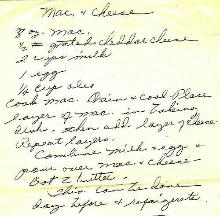 Mac. & Cheese
8 oz. mac.
1/2 # grated cheddar cheese
2 cups milk
1 egg
1/4 cup oleo
Cook mac. Drain & cool. Place
layer of mac. in baking
dish. then add layer of cheese.
Repeat layers.
Combine milk & egg &
pour over mac & cheese -
Dot & butter.
This can be done
day before & refrigerate.